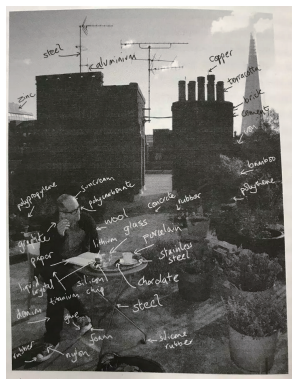 steel
aluminium
copper
terracotta
zinc
brick
cement
bamboo
polythene
polypropylene
suncream
polycarbonate
concrete
rubber
wool
glass
graphite
lithium
porcelain
paper
stainless
steel
liquid
crystal
silicon
chip
chocolate
titanium
steel
denim
glue
foam
silicone
rubber
rubber
nylon